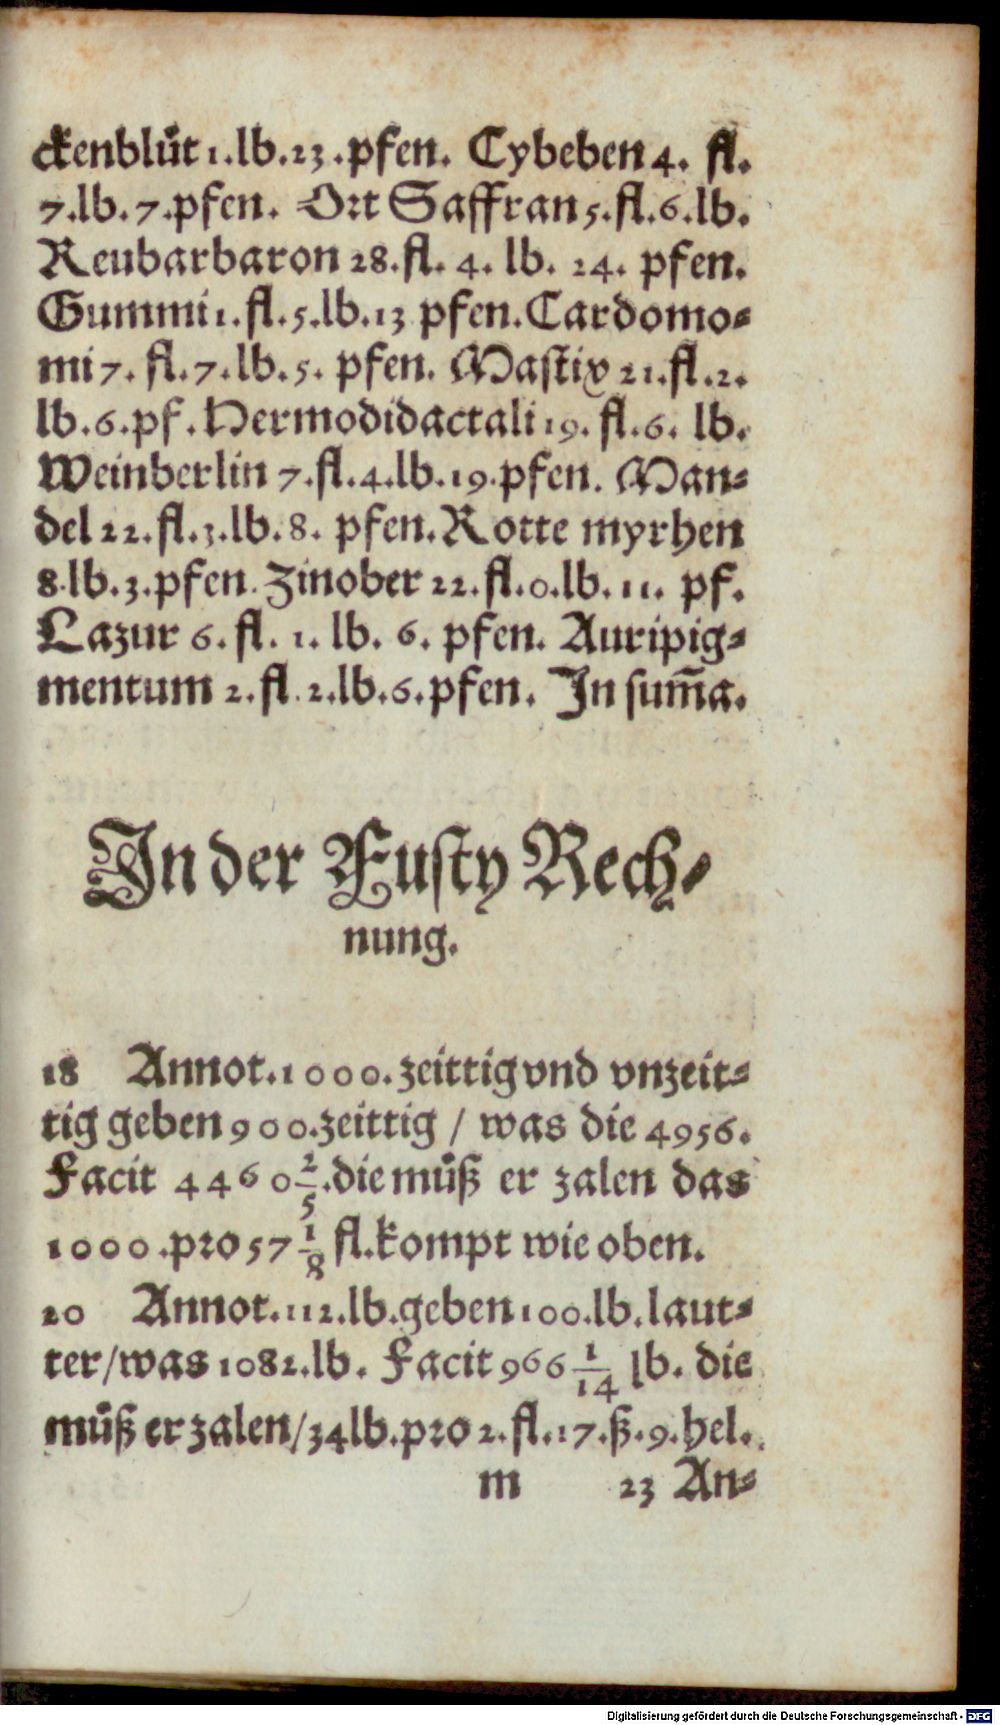 ckenblůt 1.lb.23.pfen. Cybeben 4. fl.
7.lb.7.pfen. Ort Saffran 5.fl.6.lb.
Reubarbaron 28.fl. 4. lb. 24. pfen.
Gummi 1.fl.5.lb.13 pfen. Cardomo-
mi 7. fl.7.lb.5. pfen. Mastix 21.fl.2.
lb.6.pf. Hermodidactali 19. fl.6. lb.
Weinberlin 7.fl.4.lb.19.pfen. Man-
del 22.fl.3.lb.8. pfen. Rotte myrhen
8.lb.3.pfen. Zinober 22.fl.0.lb.11. pf.
Lazur 6.fl. 1. lb. 6. pfen. Auripig-
mentum 2.fl.2.lb.6.pfen. In sum̄a.
In der Fusty Rech-
nung.
18 Annot.1000.zeittig vnd vnzeit-
tig geben 900.zeittig / was die 4956.
Facit 4460 2/5.die můß er zalen das
1000.pro 57 1/8 fl.kompt wie oben.
20 Annot.112.lb.geben 100.lb.laut-
ter/was 1082.lb. Facit 966 1/14 lb. die
můß er zalen/34lb.pro 2.fl.17.ß.9.hel.
m 23 An-
Digitalisierung gefördert durch die Deutsche Forschungsgemeinschaft - DFG